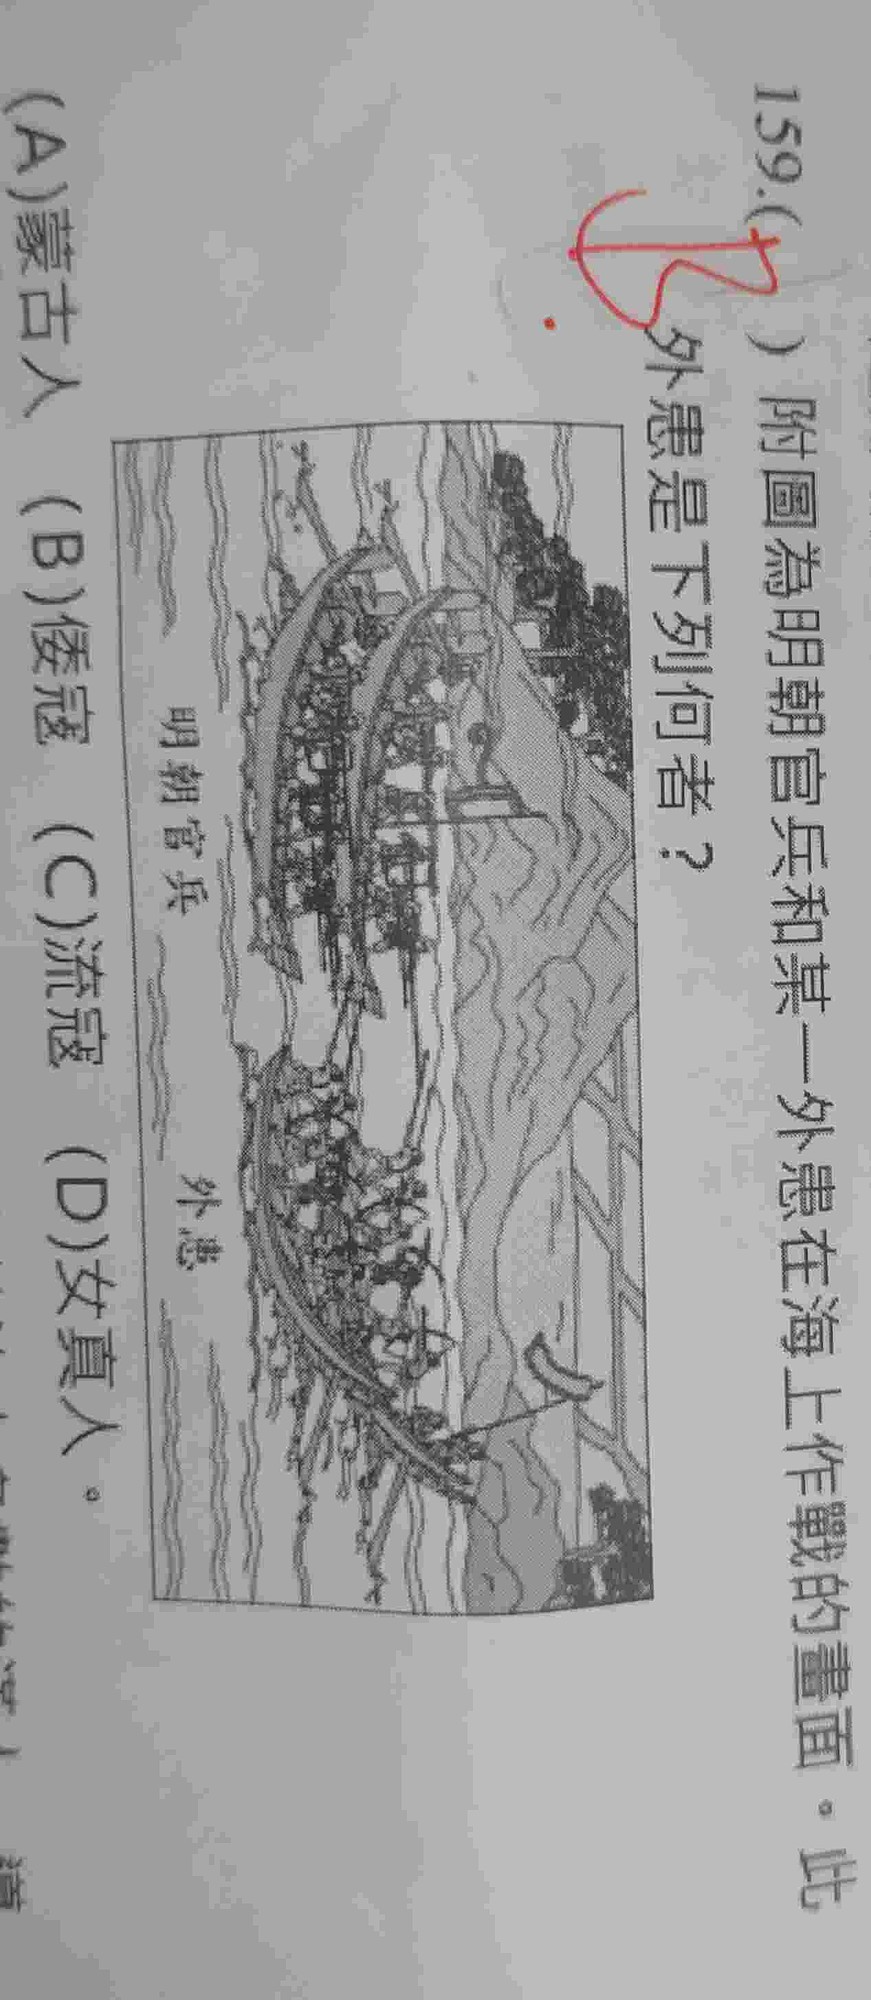 159.( B ) 附圖為明朝官兵和某一外患在海上作戰的畫面。此
外患是下列何者？
明朝官兵
外患
(A)蒙古人 (B)倭寇 (C)流寇 (D)女真人。